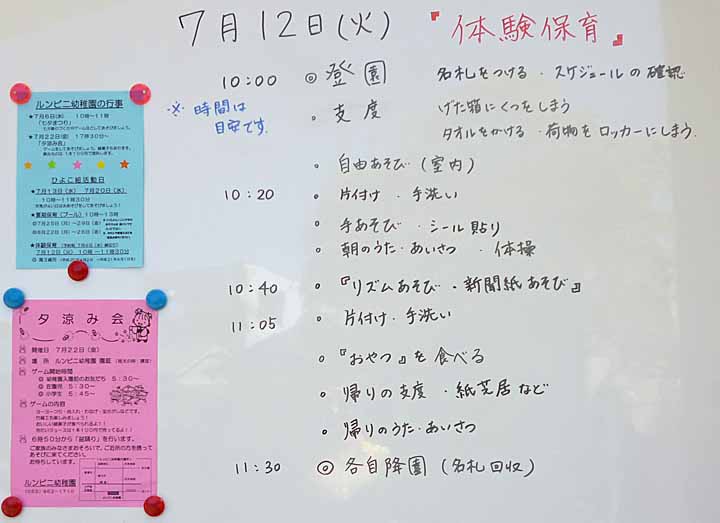 7月12日(火) 『体験保育』
10:00 ◎ 登園 名札をつける・スケジュールの確認
※ 時間は
目安です。
。支度 げた箱にくつをしまう
タオルをかける・荷物をロッカーにしまう。
。自由あそび (室内)
10:20 。片付け・手洗い
。手あそび・シール貼り
。朝のうた・あいさつ ・体操
10:40 。『リズムあそび・新聞紙あそび』
11:05 。片付け・手洗い
。『おやつ』を食べる
。帰りの支度・紙芝居など
。帰りのうた・あいさつ
11:30 ◎ 各自降園 (名札回収)
ルンビニ幼稚園の行事
★7月6日(水) 10時~11時
「七夕まつり」
★7月22日(金) 17時30分~
「夕涼み会」
ひよこ組活動日
★7月13日(水) 7月20日(水)
10時~11時30分
★夏期保育(プール)10時~13時
7月12日(火) 10時~11時30分
夕涼み会
開催日 7月22日(金)
場所 ルンビニ幼稚園 園庭
ゲーム開始時間
◎ 幼稚園入園前のお友だち 5:30~
◎ 在園児 5:30~
◎ 小学生 5:45~
ゲームの内容
6時50分から「盆踊り」を行います。
ご家族のみなさまおそろいで、ご近所の方も誘って
あそびに来てください。
お待ちしています。
ルンビニ幼稚園